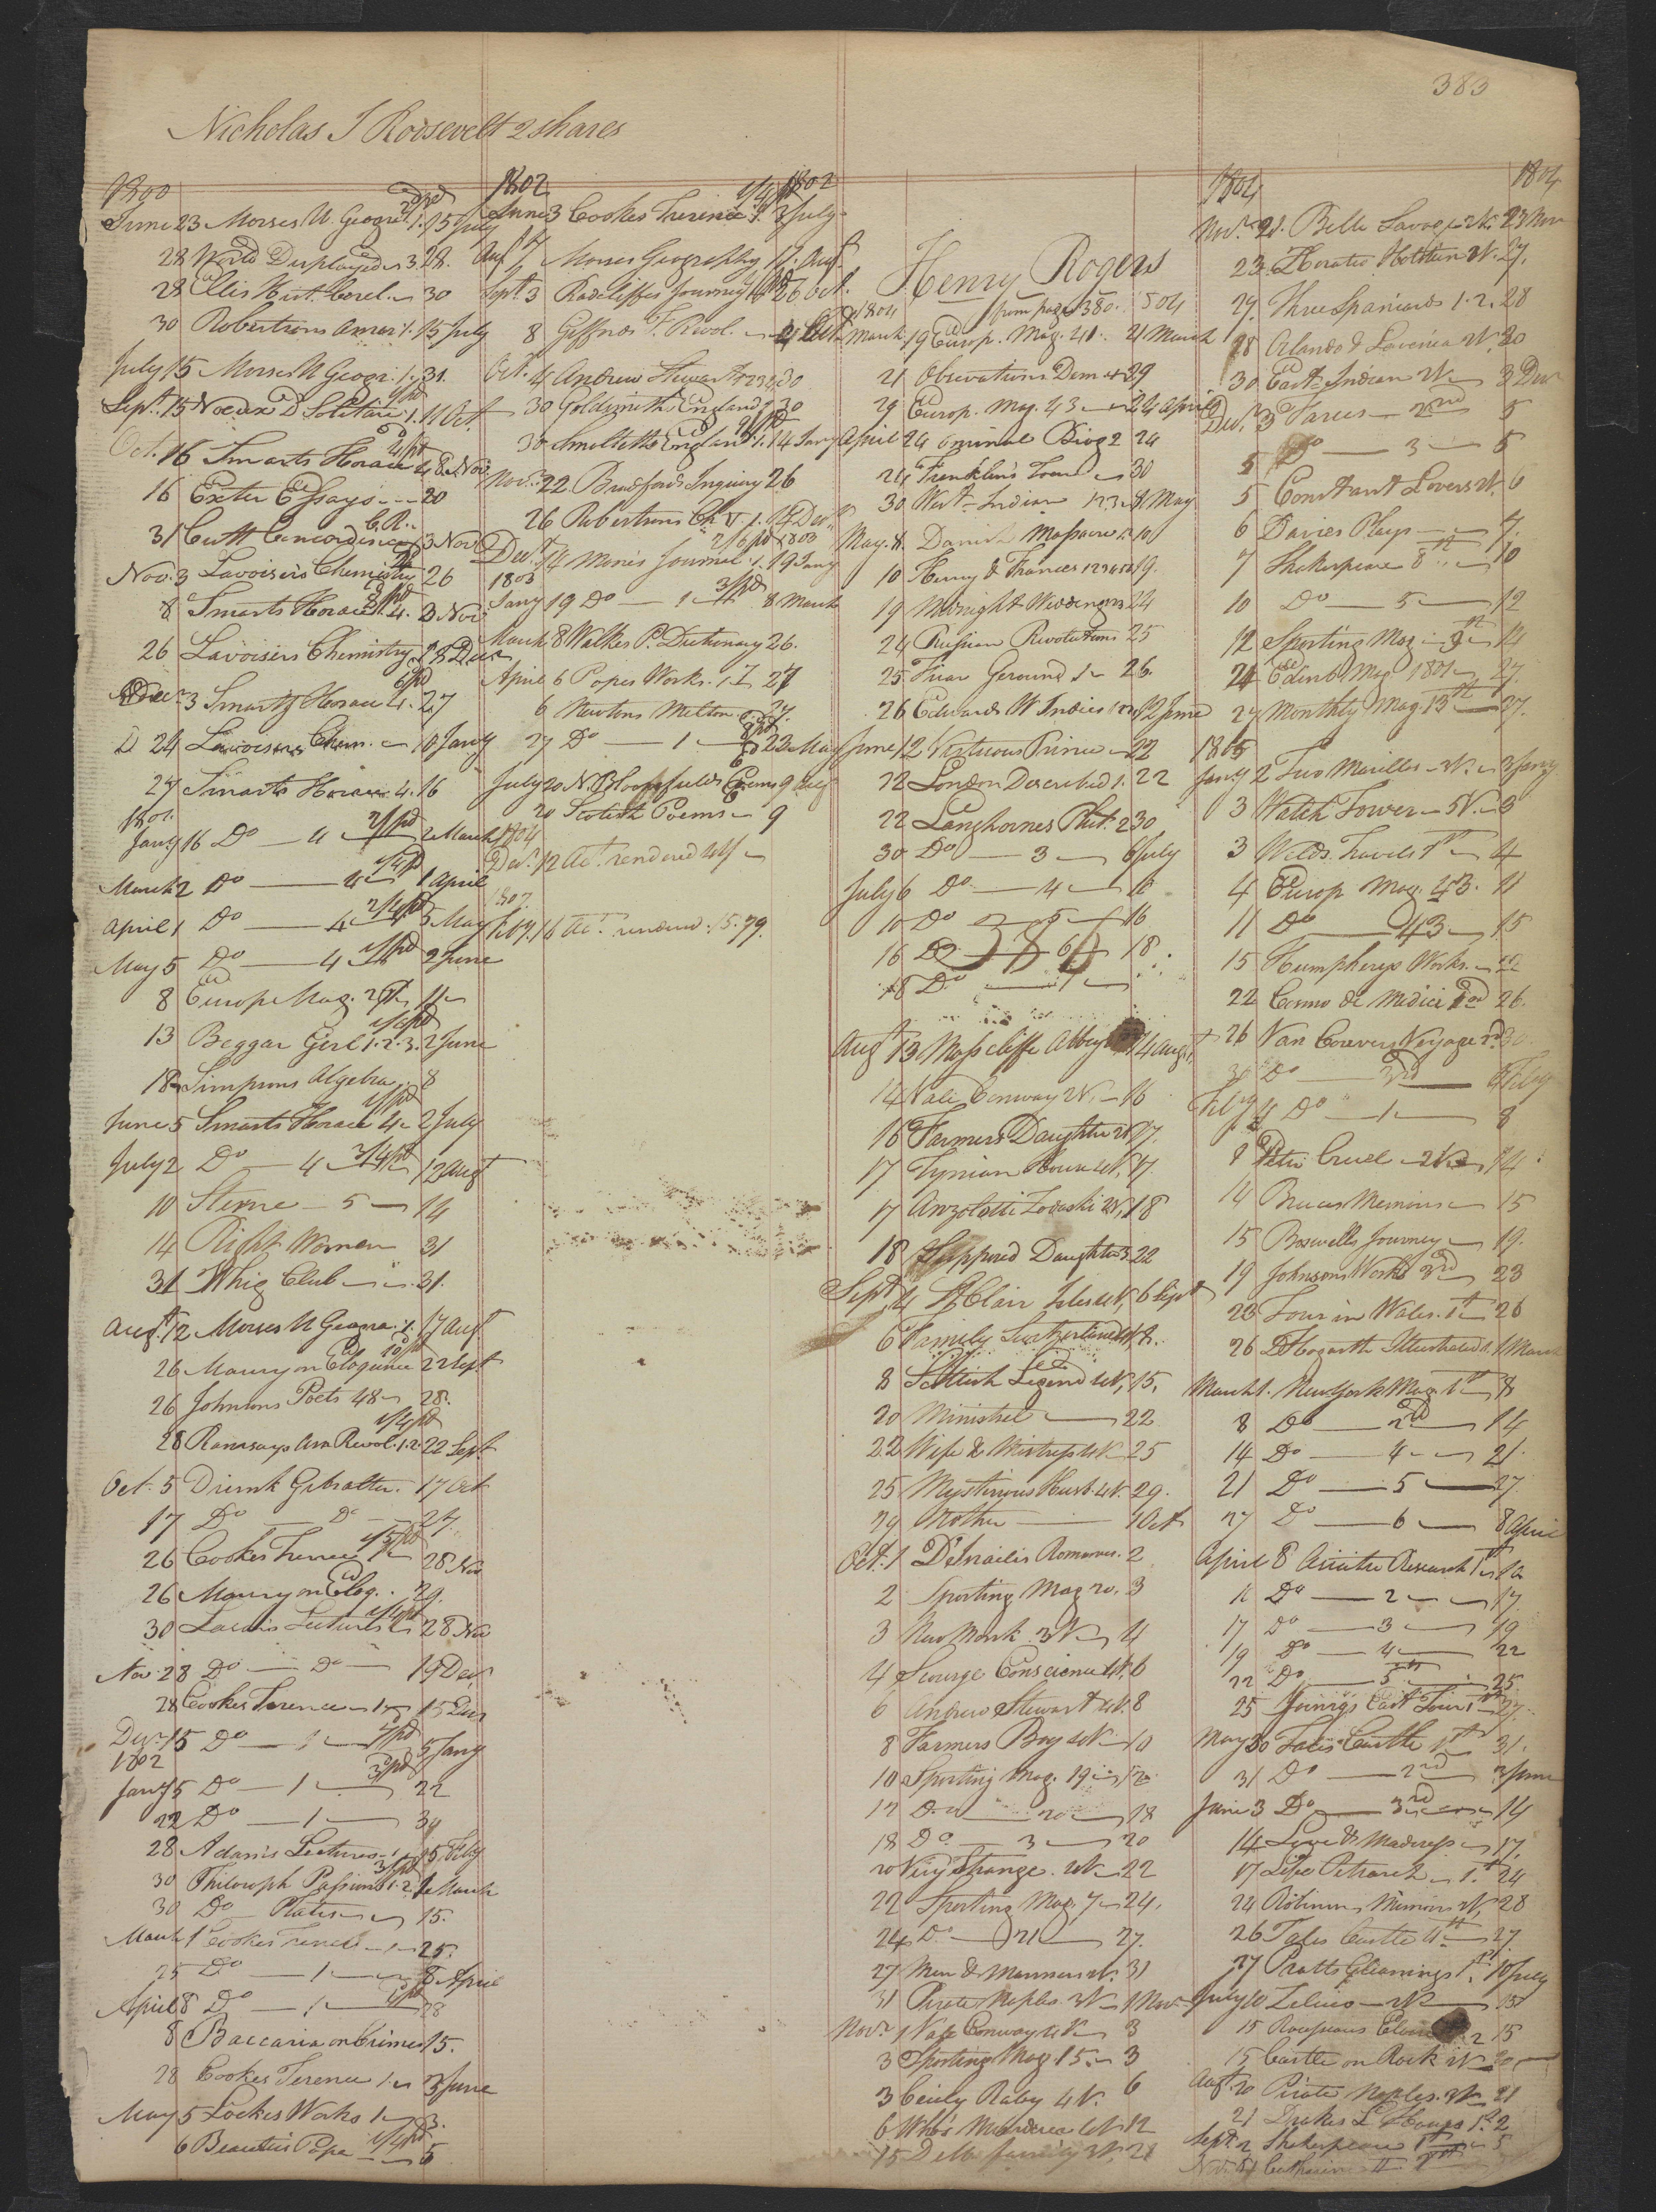 383
Nicholas J Roosevelt 2 shares
1800
June 23 Morses U. Geogr. 1. 15 July
28 World Displayed 3. 28.
28 Ellis Hist. Corel. 30
30 Robertsons Amer. 1. 15 July
July 15 Morses U Geogr. 1. 31.
Sept. 15 D Solitaire 1. 11 Oct.
Oct. 16 Smarts Horace 4 8 Nov.
16 Exeter Essays 20
31 Concordance 3 Nov
Nov. 3 Lavoisiers Chemistry 26
8 Smarts Horace 4. 3 Nov
26 Lavoisiers Chemistry 18 Decr
Decr 3 Smarts Horace 4. 27
D 24 Lavoisiers Chem. 10 Jany
27 Smarts Horace 4. 16
1801.
Jany 16 Do 4 2 March
March 2 Do 4 1 April
April 1 Do 4 5 May
May 5 Do 4 2 June
8 Europe Mag. 11
13 Beggar Girl 1.2.3. 2 June
18 Simpsons Algebra 8
June 5 Smarts Horace 4 2 July
July 2 Do 4 12 Augt
10 Sterne 5 14
14 Right Women 31
31 Whig Club 31.
Augt. 12 Morses U Geogra. 1. 17 Augt.
26 Maury on Eloquence 22 Sept
26 Johnsons Poets 48 28.
28 Ramsays Am Revol. 1.2. 22 Sept
Oct. 5 Drink Gibralter. 17 Oct
17 Do Do 24
26 Cookes Terence 1 28 Nov
26 Maury on Eloq. 29.
30 Lectures 28 Nov
Nov. 28 Do Do 19 Decr
28 Cookes Terence 1 15 Decr
Decr. 15 Do 1 5 Jany
1802
Jany 5 Do 1 22
22 Do 1 30
28 Adams Lectures 1 15 Feby
30 Philosoph Passions 1.2. 1 March
30 Do Plates 15.
March 1 Cookes Terence 1 25.
25 Do 1 8 April
April 8 Do 1 28
8 Baccaria on Crimes 15.
28 Cookes Terence 1 3 June
May 5 Lockes Works 1 3.
6 Beauties Pope 5
1802 1802
June 3 Cookes Terence 1. 3 July
Augt. 7 Morses Geography 17. Augt.
Sept. 3 Radcliffes Journey 26 Oct.
8 Giffords F. Revol. 4 Oct.
Oct. 4 Andrew Stewart 1 2 3 4 30
30 Goldsmiths England 30
30 Smolletts England 1. 14 Jany
Novr. 22 Bradfords Inquiry 26
26 Robertsons Ch V 1. 14 Decr.
Decr. 14 Mores Journal 1. 19 Jany 1803
1803
Jany 19 Do 1 8 March
March 8 Walkes P. Dictionary 26.
April 6 Popes Works. 1 27
6 Newtons Milton 27.
27 Do 1 22 May
July 20 N. Bloomfields Poems 9 Aug
20 Scotish Poems 9
1804
Decr. 12 Act. rendered
1807.
Feby. 16 Act. rendered. 15.79.
Henry Rogers
from page 380.
1804
March 19 Europ. Mag. 41. 21 March
21 Obvervations Dem 29
29 Europ. Mag. 43 24 April
April 24 Criminal Biog 2 24
24 Franklins 30
30 West Indian 1 2 3 8 May
May 8. Danish Massacre 10
10 Henry & Frances 19.
19 Midnight Weddings 24
24 Russian Revolutions 25
25 Friar Geround 1 26.
26 Edwards W Indies 12 June
June 12 Virtuous Prince 22
22 London Described 1. 22
22 Langhornes Plut. 2 30
30 Do 3 6 July
July 6 Do 4 10
10 Do 5 16
16 Do 6 18
18 Do 7
386
Augt 13 Mosscliffe Abbey 14 Augt.
14 Vale Conway 2V. 16
16 Farmers Daughter 2V 17.
17 4V. 17
17 2V. 18
18 Supposed Daughter 3 22
Sept 4 St Clair Isles 4V. 6 Sept
6 Family Switzerland 4V. 8.
8 Scottish Legend 4V. 15.
20 Minstrel 22
22 Wife & Mistress 4V 25
25 Mysterious Husb. 4V. 29.
29 Mother 1 Oct
Oct. 1 D'Israelis Romances. 2
2 Sporting Mag 20. 3
3 New Monk 3V 4
4 Scourge Conscience 4V. 6
6 Andrew Stewart 4V. 8
8 Farmers Boy 4V 10
10 Sporting Mag. 19 12
12 Do 20 18
18 Do 3 20
20 Very Strange. 2V 22
22 Sporting Mag. 7 24.
24 Do 21 27.
27 Men & Manners 4V. 31
31 Pirate Naples. 3V 1 Novr
Novr. 1 Vale Conway 4V 3
3 Sporting Mag 15. 3
3 Cicely Raby 4V. 6
6 Who's Murderer 4V 12
15 family 2V. 21
1804 1804
Novr. 21. Belle 2V. 23 Nov
23. Horatio Holstein 2V. 27.
27. Three Spaniards 1.2. 28
28 Orlando & Lavinia 2V. 30
30 East Indian 2V 3 Decr
Decr. 3 Farces 2nd 5
5 Do 3 5
5 Constant Lovers 2V. 6
6 Davies Plays 7.
7 Shakespeare 8th 10
10 Do 5 12
12 Sporting Mag. 9th 14
24 Edinb Mag. 1801 27.
27 Monthly Mag. 13th 27.
1805
Jany 2 Two Marillas 3V. 3 Jany
3 Watch Tower 5V. 3
3 Welds Travels 1st 4
4 Europ Mag. 43. 11
11 Do 43 15
15 Humphreys Works 22
22 Cosmo de Medici 26.
26 Van Couvers Voyage 30.
30 Do 3rd 4 Feby
Feby 4 Do 1 8
8 Peter Cruel 14
14 Bruces Memoirs 15
15 Boswells Journey 19.
19 Johnsons Works 3rd 23
23 Tour in Wales. 1st 26
26 Hogarth Illustrated 1. 1 March
March 1. New York Mag. 1st 8
8 Do 2nd 14
14 Do 4 21.
21 Do 5 27.
27 Do 6 8 April
April 8 Asiatic Research 1st 16
16 Do 2 17
17 Do 3 19
19 Do 4 22
22 Do 5th 25.
25 Youngs East Tour 1st 27.
May 30 Tales Castle 1st 31.
31 Do 2nd 3 June
June 3 Do 3rd 14
14 Love & Madness 17.
17 Life Petrarch 1st 24
24 Robinsons Memoirs 2V. 28
26 Tales Castle 4th 27.
27 Pratts Gleanings 1st. 10 July
July 10 Zelico 2V 15
15 Rousseaus 2 15
15 Castle on Rock 2V 20
Augt. 20 Pirate Naples. 3V 21
21 1st. 2
Sept. 2 Shakespeare 1st 5